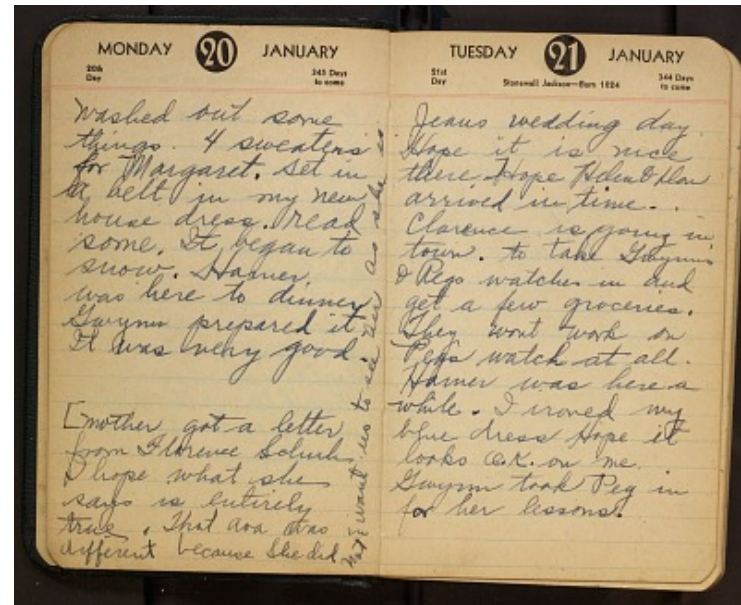 MONDAY 20 JANUARY
20th Day
345 Days to come
Washed out some
things. 4 sweaters
for Margaret. Set in
a belt in my new
house dress. Read
some. It began to
snow. Hamer
was here to dinner
Gwynn prepared it
It was very good.
[Mother got a letter
from Florence Schuh
I hope what she
says is entirely
true. That Ava was
different because She did
not want us to see her as she is
TUESDAY 21 JANUARY
21st Day
Stonewall Jackson—Born 1824
344 Days to come
Jeans wedding day.
Hope it is nice
there. Hope Helen &
arrived in time.
Clarence is going in
town. to take Gwynns
& Pegs watches in and
get a few groceries.
They wont work on
Pegs watch at all.
Hamer was here a
while. I ironed my
blue dress Hope it
looks O.K. on me.
Gwynn took Peg in
for her lessons.